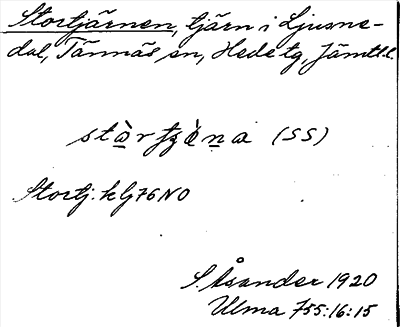 Stortjärnen, tjärn i Ljusne-
dal, Tännäs sn, Hede tg, Jämtl.l.
(SS)
Stortj. k Lj 76 NO
S. Åsander 1920
Ulma 755:16:15